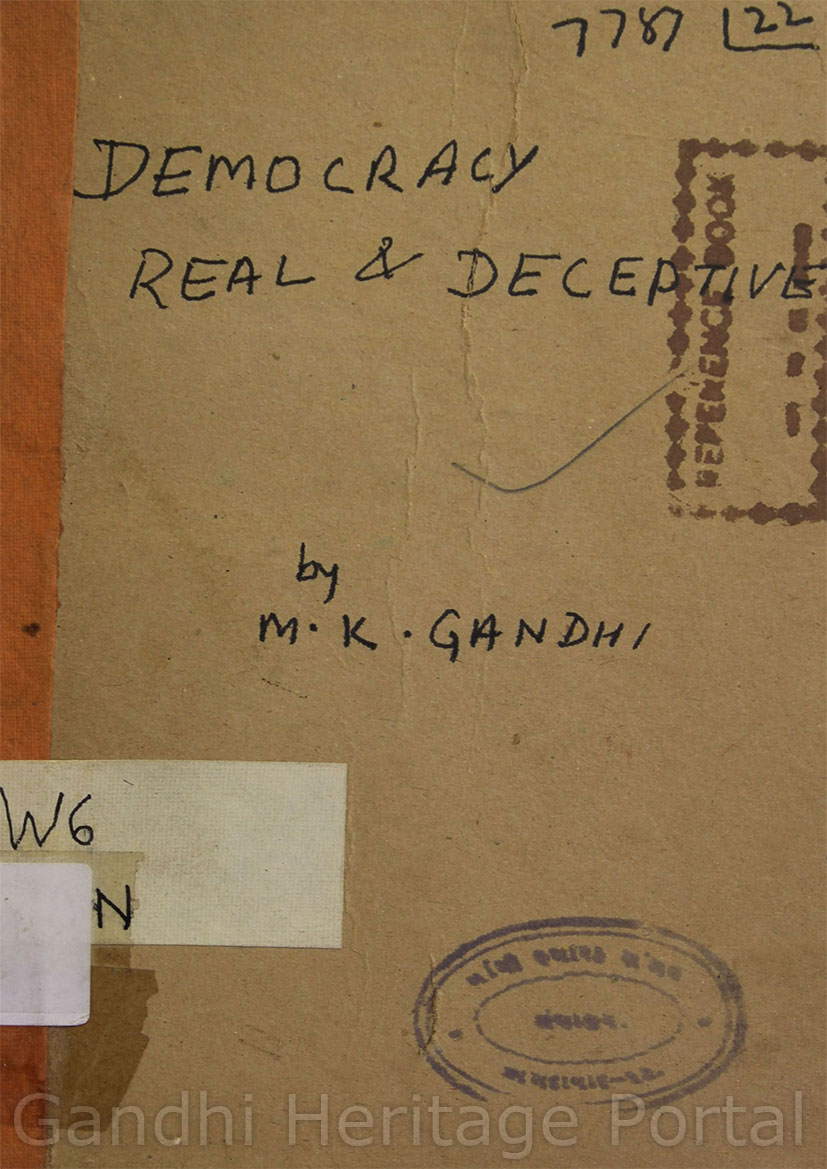 7787 22
DEMOCRACY
REAL & DECEPTIVE
REFERENCE BOOK
by
M. K. GANDHI
W6
N
Gandhi Heritage Portal